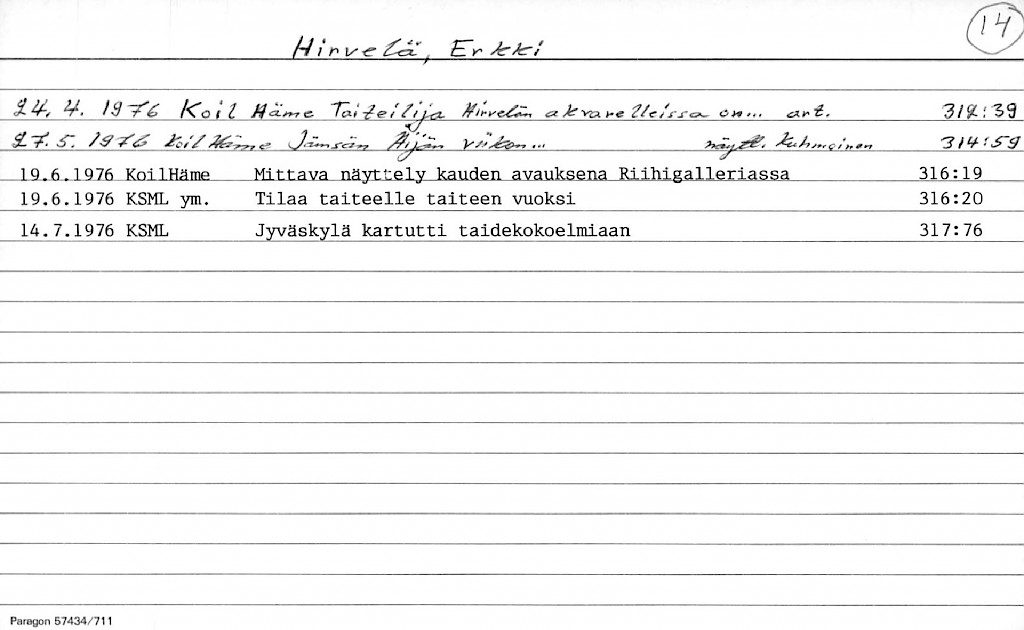 14
Hirvelä, Erkki
24. 4. 1976 Koil Häme Taiteilija Hirvelän akvarelleissa on... art. 312:39
27. 5. 1976 Koil Häme Jämsän Äijän viikon... näytt. Kuhmoinen 314:59
19.6.1976 KoilHäme Mittava näyttely kauden avauksena Riihigalleriassa 316:19
19.6.1976 KSML ym. Tilaa taiteelle taiteen vuoksi 316:20
14.7.1976 KSML Jyväskylä kartutti taidekokoelmiaan 317:76
Paragon 57434/711